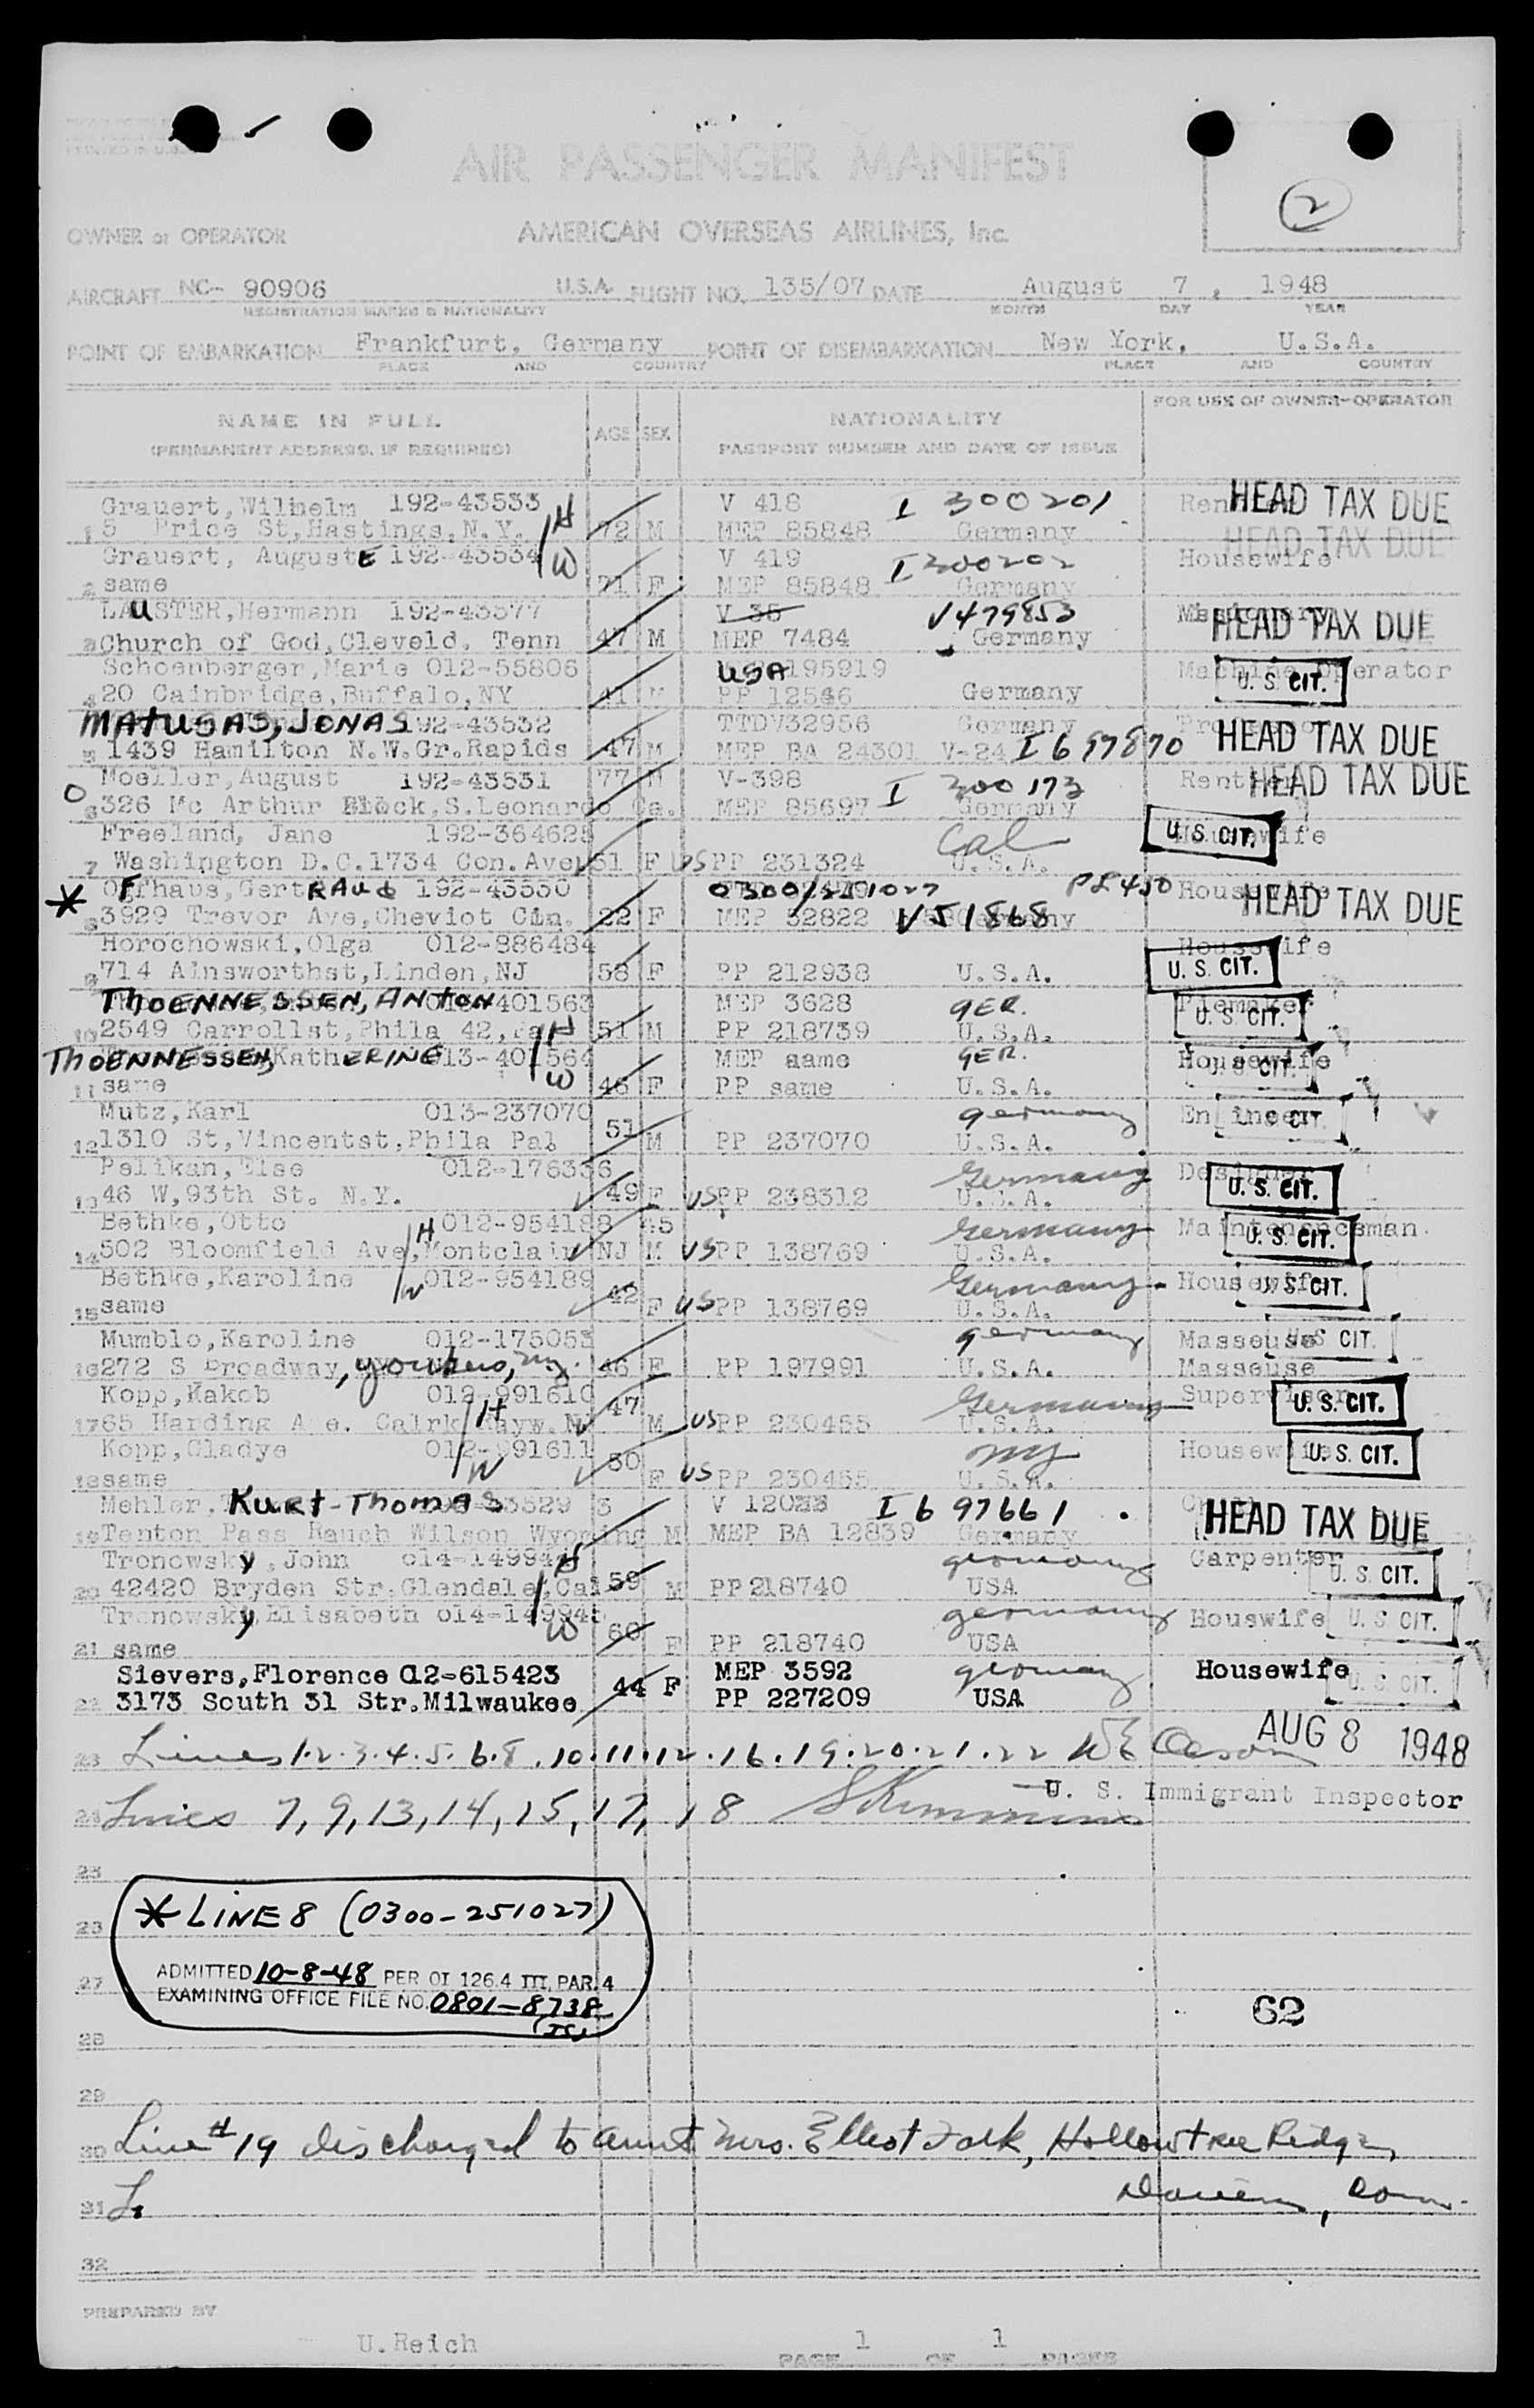 PRINTED IN U.S.A.
2
AIR PASSENGER MANIFEST
OWNER or OPERATOR AMERICAN OVERSEAS AIRLINES, Inc.
AIRCRAFT NC- 90906 U.S.A. FLIGHT NO. 135/07 DATE August 7, 1948
REGISTRATION MARKS & NATIONALITY MONTH DAY YEAR
POINT OF EMBARKATION Frankfurt, Germany POINT OF DISEMBARKATION New York, U.S.A.
PLACE AND COUNTRY PLACE AND COUNTRY
NAME IN FULL AGE SEX NATIONALITY FOR USE OF OWNER-OPERATOR
(PERMANENT ADDRESS, IF REQUIRED) PASSPORT NUMBER AND DATE OF ISSUE
Grauert, Wilhelm 192-43533 H V 418 I 300201 HEAD TAX DUE
1 5 Price St, Hastings, N.Y. 72 M MEP 85848 Germany HEAD TAX DUE
Grauert, AugustE 192-43534 W V 419 I 300202 Housewife
2 same 71 F MEP 85848 Germany
LAuSTER, Hermann 192-43377 V 35 V479853 HEAD TAX DUE
3 Church of God, Cleveld. Tenn 47 M MEP 7484 Germany
Schoenberger, Marie 012-55806 USA 195919 Machine Operator
4 20 Cainbridge, Buffalo, NY 41 PP 12546 Germany U.S. CIT.
MATUSAS, JONAS 192-43532 TTDV32956 Germany HEAD TAX DUE
5 1439 Hamilton N.W. Gr. Rapids 47 M MEP BA 24301 V-24 I 697870
Moeller, August 192-43531 77 M V-398 I 300173 HEAD TAX DUE
O 6 326 Mc Arthur Block, S. Leonardo Ca. MEP 85697 Germany
Freeland, Jane 192-364625 Cal U.S. CIT. Housewife
7 Washington D.C. 1734 Con. Ave 51 F US PP 231324 U.S.A.
* Offhaus, GertRAUd 192-43530 0300/251027 Housewife HEAD TAX DUE
8 3929 Trevor Ave, Cheviot Cin. 22 F MEP 32822 V51868 Germany
Horochowski, Olga 012-886484 Housewife
9 714 Ainsworthst, Linden, NJ 58 F PP 212938 U.S.A. U.S. CIT.
THOENNESSEN, ANTON 013-401563 MEP 3628 GER. Piemaker
10 2549 Carrollst, Phila 42, Pa H 51 M PP 218739 U.S.A. U.S. CIT.
THOENNESSEN, KathERINE 013-401564 MEP aame GER. Housewife
11 same W 46 F PP same U.S.A. U.S. CIT.
Mutz, Karl 013-237070 Germany Engineer
12 1310 St, Vincentst, Phila Pal 51 M PP 237070 U.S.A. U.S. CIT.
Pelikan, Else 012-176336 Germany Designer
13 46 W, 93th St. N.Y. 49 F US PP 238312 U.S.A. U.S. CIT.
Bethke, Otto H 012-954188 45 Germany Maintenanceman.
14 502 Bloomfield Ave, Montclair NJ M US PP 138769 U.S.A. U.S. CIT.
Bethke, Karoline W 012-954189 Germany Housewife
15 same 42 F US PP 138769 U.S.A. U.S. CIT.
Mumblo, Karoline 012-175053 Germany Masseuse U.S. CIT.
16 272 S Broadway, Yonkers, NY. 46 F PP 197991 U.S.A. Masseuse
Kopp, Kakob 012-991610 47 Germany Supervisor
17 65 Harding A e. Calrk Rayw. NJ H M US PP 230455 U.S.A. U.S. CIT.
Kopp, Gladys 012-991611 NY Housewife
18 same W 30 F US PP 230455 U.S.A. U.S. CIT.
Mehler, Kurt-Thomas 3 V 12033 I 697661 HEAD TAX DUE
19 Tenton Pass Ranch Wilson Wyoming M MEP BA 12839 Germany
Tronowsky, John 014-149944 H Germany Carpenter
20 42420 Bryden Str. Glendale, Cal 59 M PP 218740 USA U.S. CIT.
Tronowsky, Elisabeth 014-149945 W Germany Houswife U.S. CIT.
21 same 60 F PP 218740 USA
Sievers, Florence 012-615423 MEP 3592 Germany Housewife
22 3173 South 31 Str. Milwaukee 44 F PP 227209 USA U.S. CIT.
23 Lines 1.2.3.4.5.6.8.10.11.12.16.19.20.21.22 AUG 8 1948
U. S. Immigrant Inspector
24 Lines 7, 9, 13, 14, 15, 17, 18
25
26 * LINE 8 (0300-251027)
27 ADMITTED 10-8-48 PER OI 126.4 III, PAR. 4
EXAMINING OFFICE FILE NO. 0801-8738
62
28
29
30 Line #19 discharged to aunt Mrs. Elliot Falk, Hollowtree Ridge,
31 Darien, Conn.
32
PREPARED BY
U. Reich PAGE 1 OF 1 PAGES